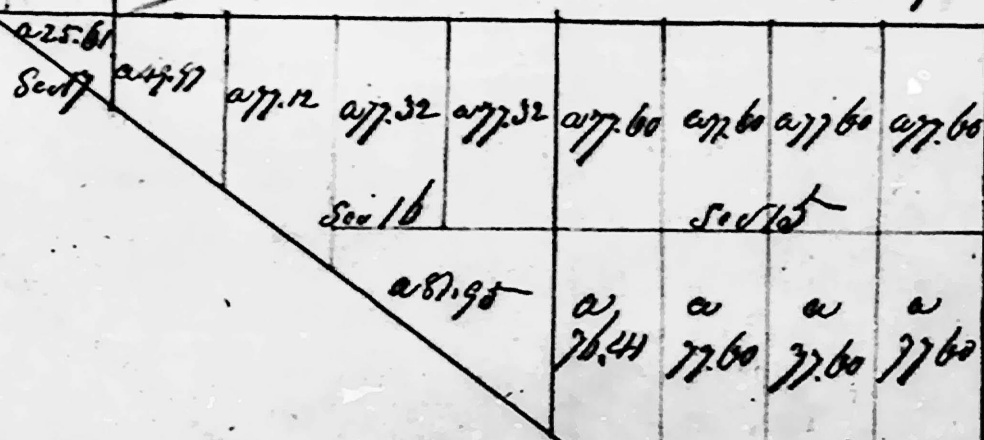 a25.61
Sec 17
a49.97
a77.12
a77.32
a77.32
a77.60
a77.60
a77.60
a77.60
Sec 16
Sec 15
a87.95
a
76.41
a
77.60
a
77.60
a
77.60